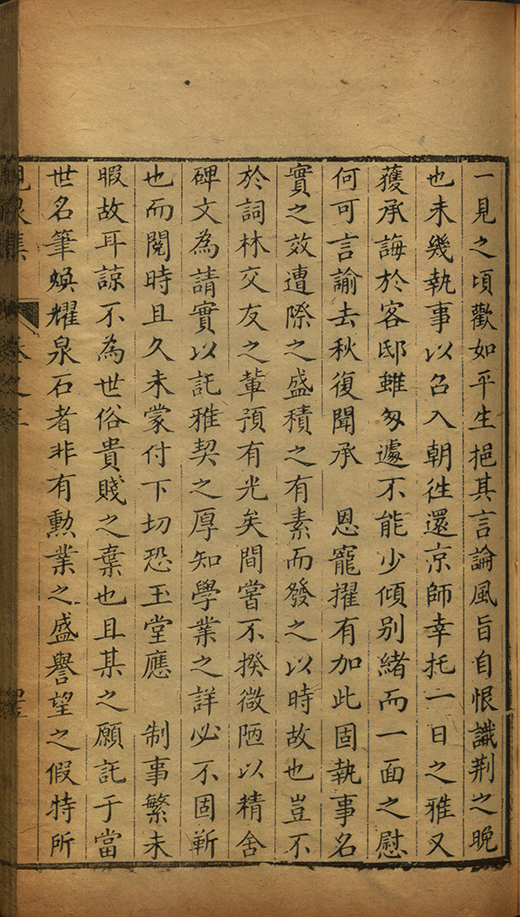 一見之頃歡如平生挹其言論風旨自恨識荆之晚
也未幾執事以召入朝徃還京師幸托一日之雅又
獲承誨於客邸雖匆遽不能少傾别緒而一面之慰
何可言諭去秋復聞承　恩寵擢有加此固執事名
實之效遭際之盛積之有素而發之以時故也豈不
於詞林交友之輩預有光矣間嘗不揆微陋以精舍
碑文為請實以託雅契之厚知學業之詳必不固靳
也而閱時且久未蒙付下切恐玉堂應　制事繁未
暇故耳諒不為世俗貴賤之棄也且某之願託于當
世名筆焕耀泉石者非有勲業之盛譽望之假特所